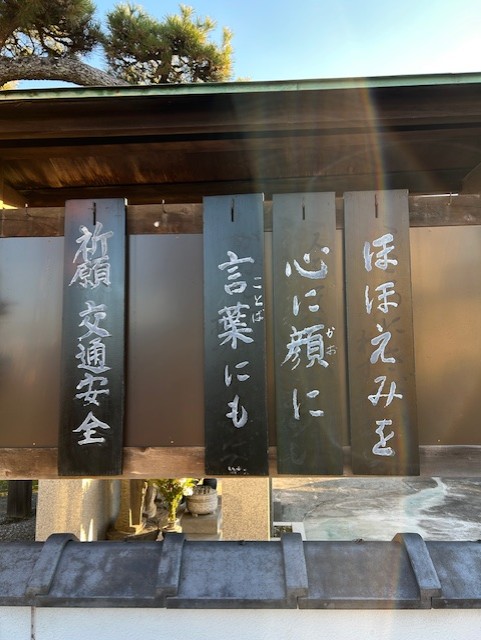 ほほえみを
心に顔に
かお
言葉にも
ことば
祈願 交通安全